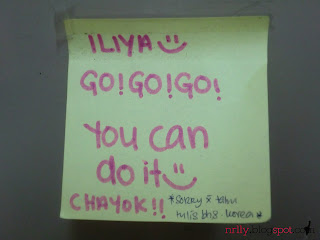 ILIYA
GO! GO! GO!
You can
do it
CHAYOK!!
*sorry x tahu
tulis bhs. korea*
nrlly.blogspot.com